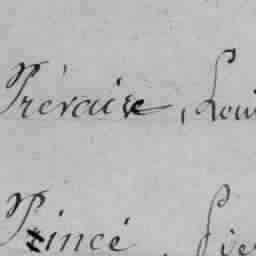 Trévaise, Loui
Pincé, Pie